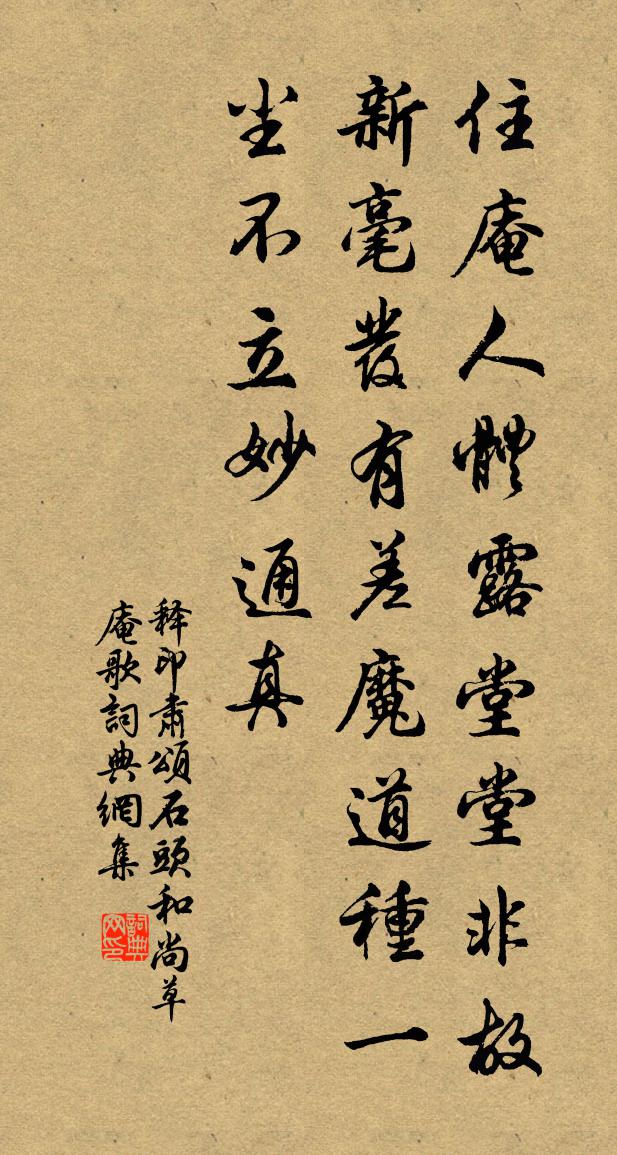 住庵人體露堂堂非故
新毫發有差魔道種一
坐不立妙通真
释印肅頌石頭和尚草
庵歌詞典網集
詞典网印